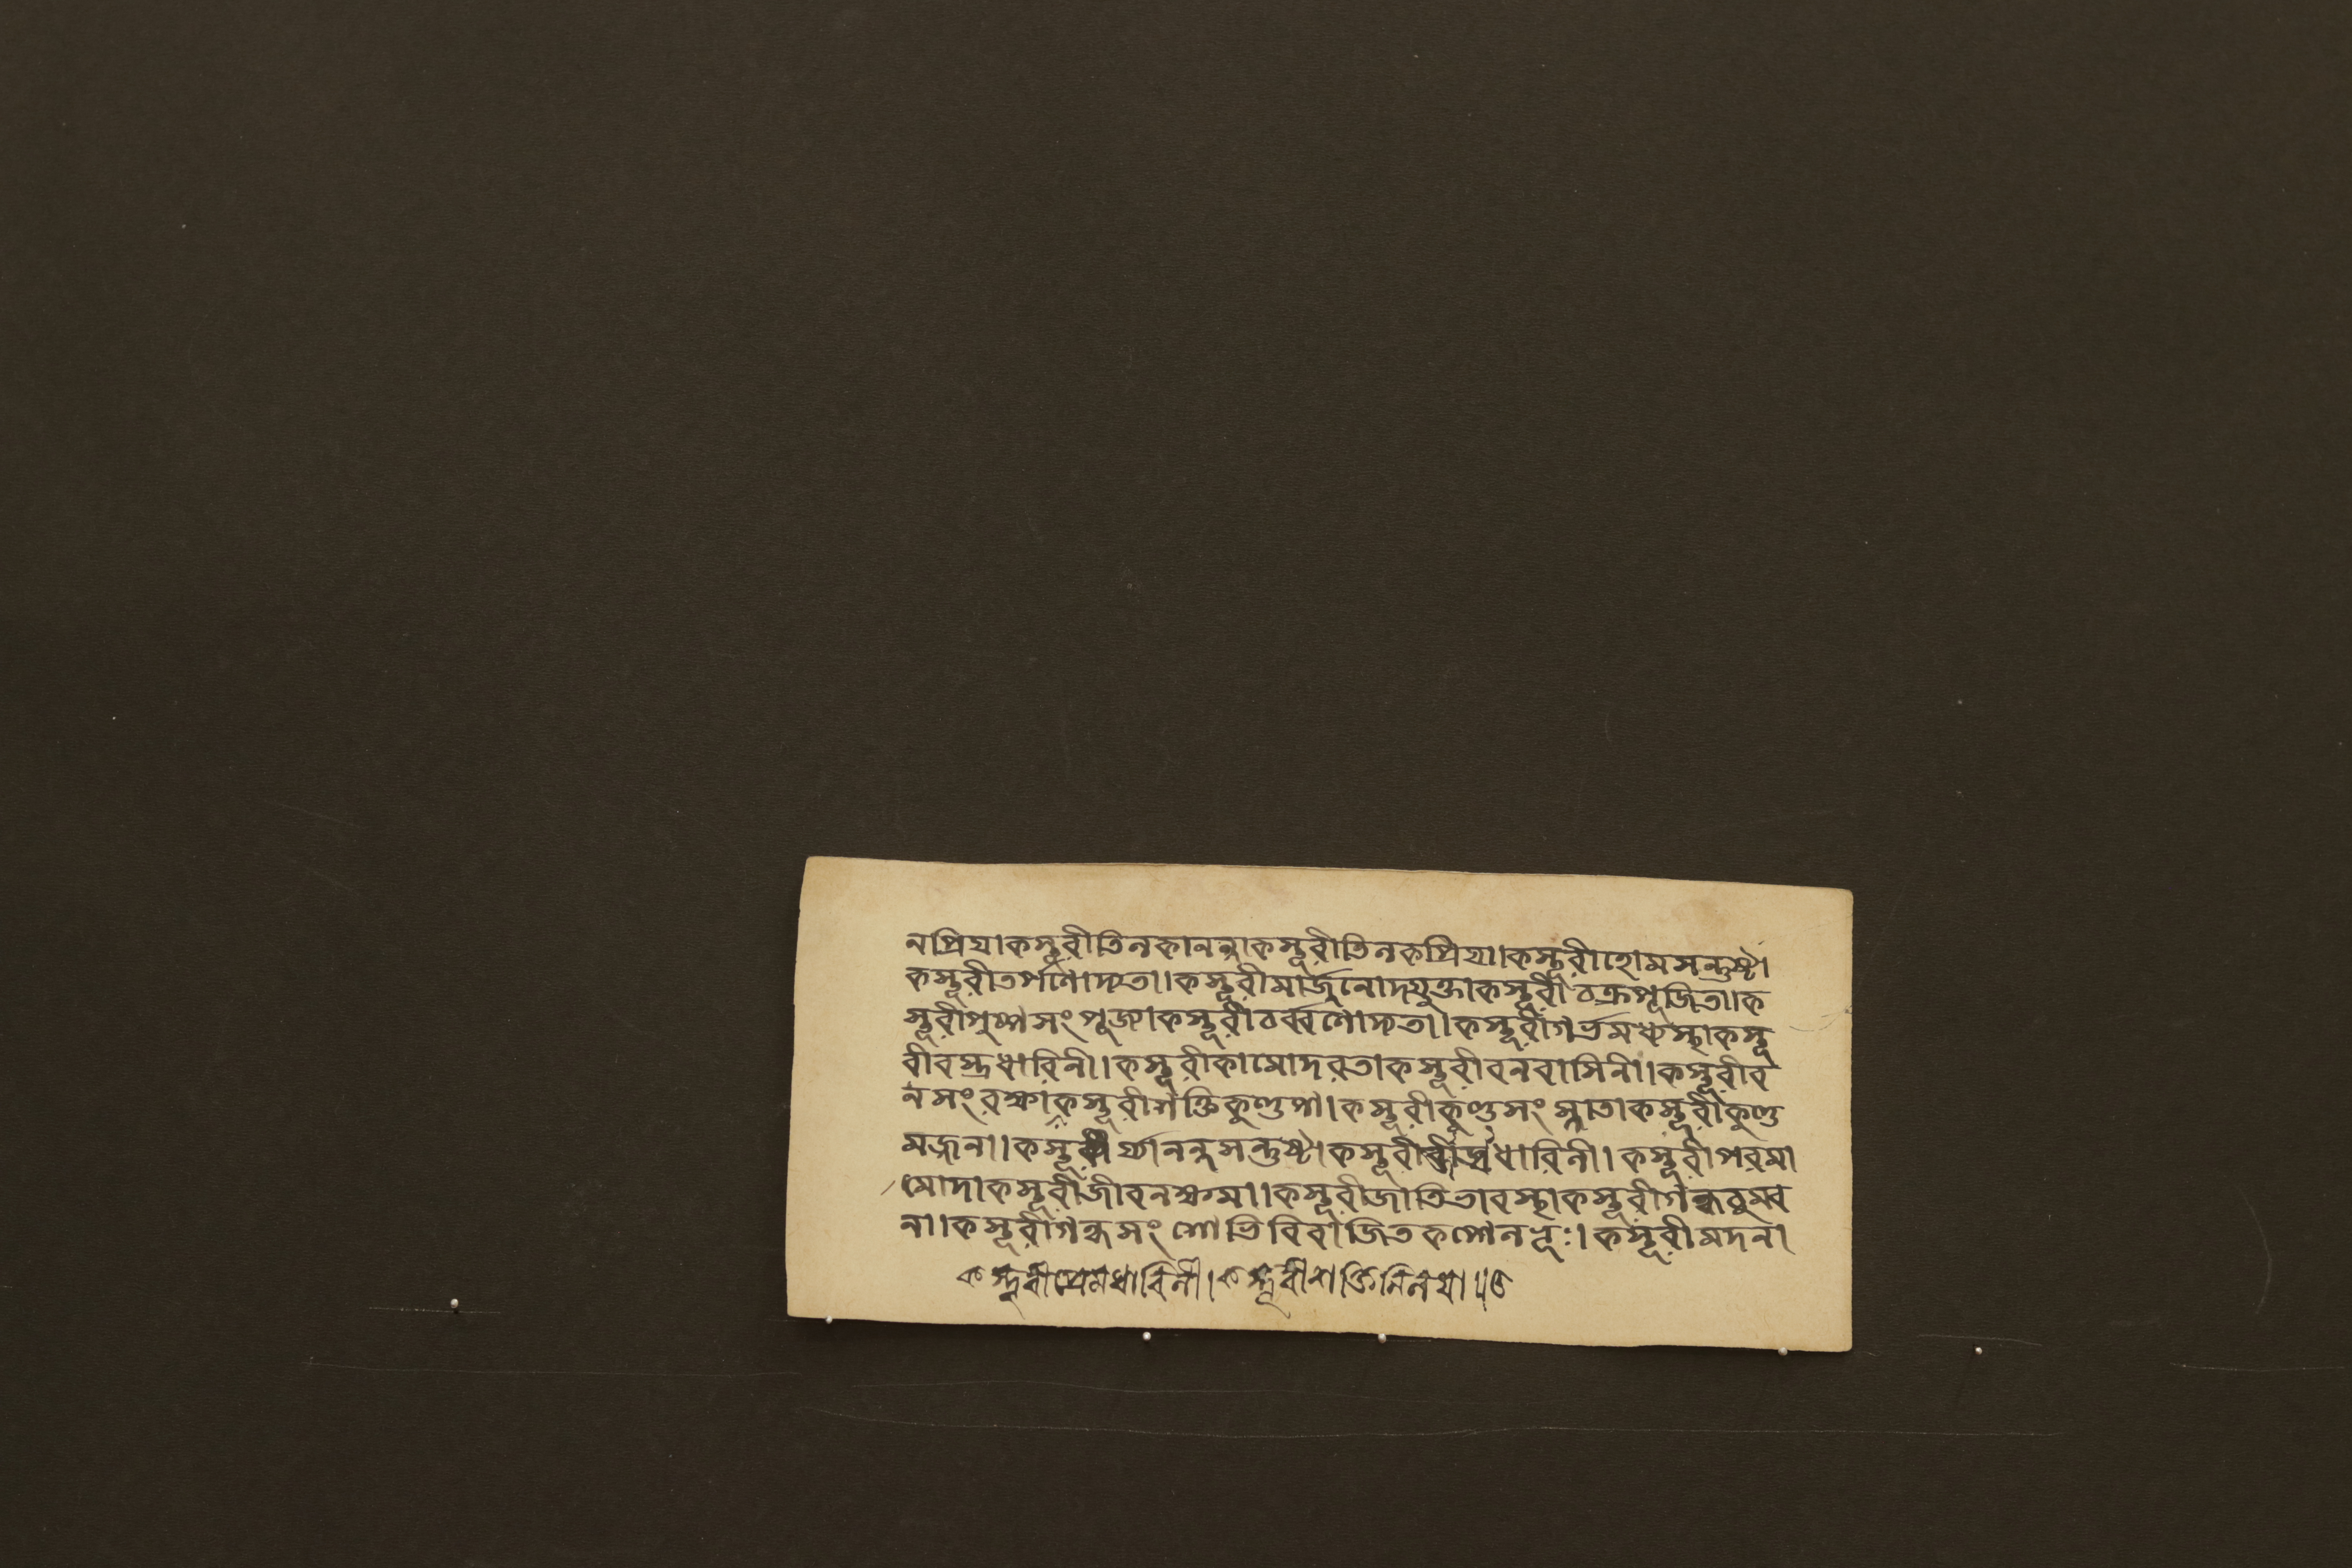 নপ্রিয়া কস্তূরীতিলকানন্দা কস্তূরীতিলকপ্রিয়া। কস্তূরীহোমসন্তুষ্টা
কস্তূরীতর্পণোদ্যতা। কস্তূরীমার্জনোদযুক্তা কস্তূরীচক্রপূজিতা। ক
স্তূরীপুষ্পসংপূজ্যা কস্তূরীচর্ব্বণোদ্যতা। কস্তূরীগর্ভমধ্যস্থা কস্তূ
রীবস্ত্রধারিনী। কস্তূরীকামোদরতা কস্তূরীবনবাসিনী। কস্তূরীব
নসংরক্ষা কস্তূরীশক্তিকুণ্ডপা। কস্তূরীকুণ্ডসংস্নাতা কস্তূরীকুণ্ড
মজ্জনা। কস্তূরী র্য্যানন্দসন্তুষ্টা কস্তূরী ধারিনী। কস্তূরীপরমা
মোদা কস্তূরীজীবনক্ষমা। কস্তূরীজাতিভাবস্থা কস্তূরীগন্ধচুম্ব
না। কস্তূরীগন্ধসংশোভিবিরাজিতকপোলভূঃ। কস্তূরীমদনা
কস্তূরীপ্রেমধারিনী। কস্তূরীশক্তিনিলয়া ॥